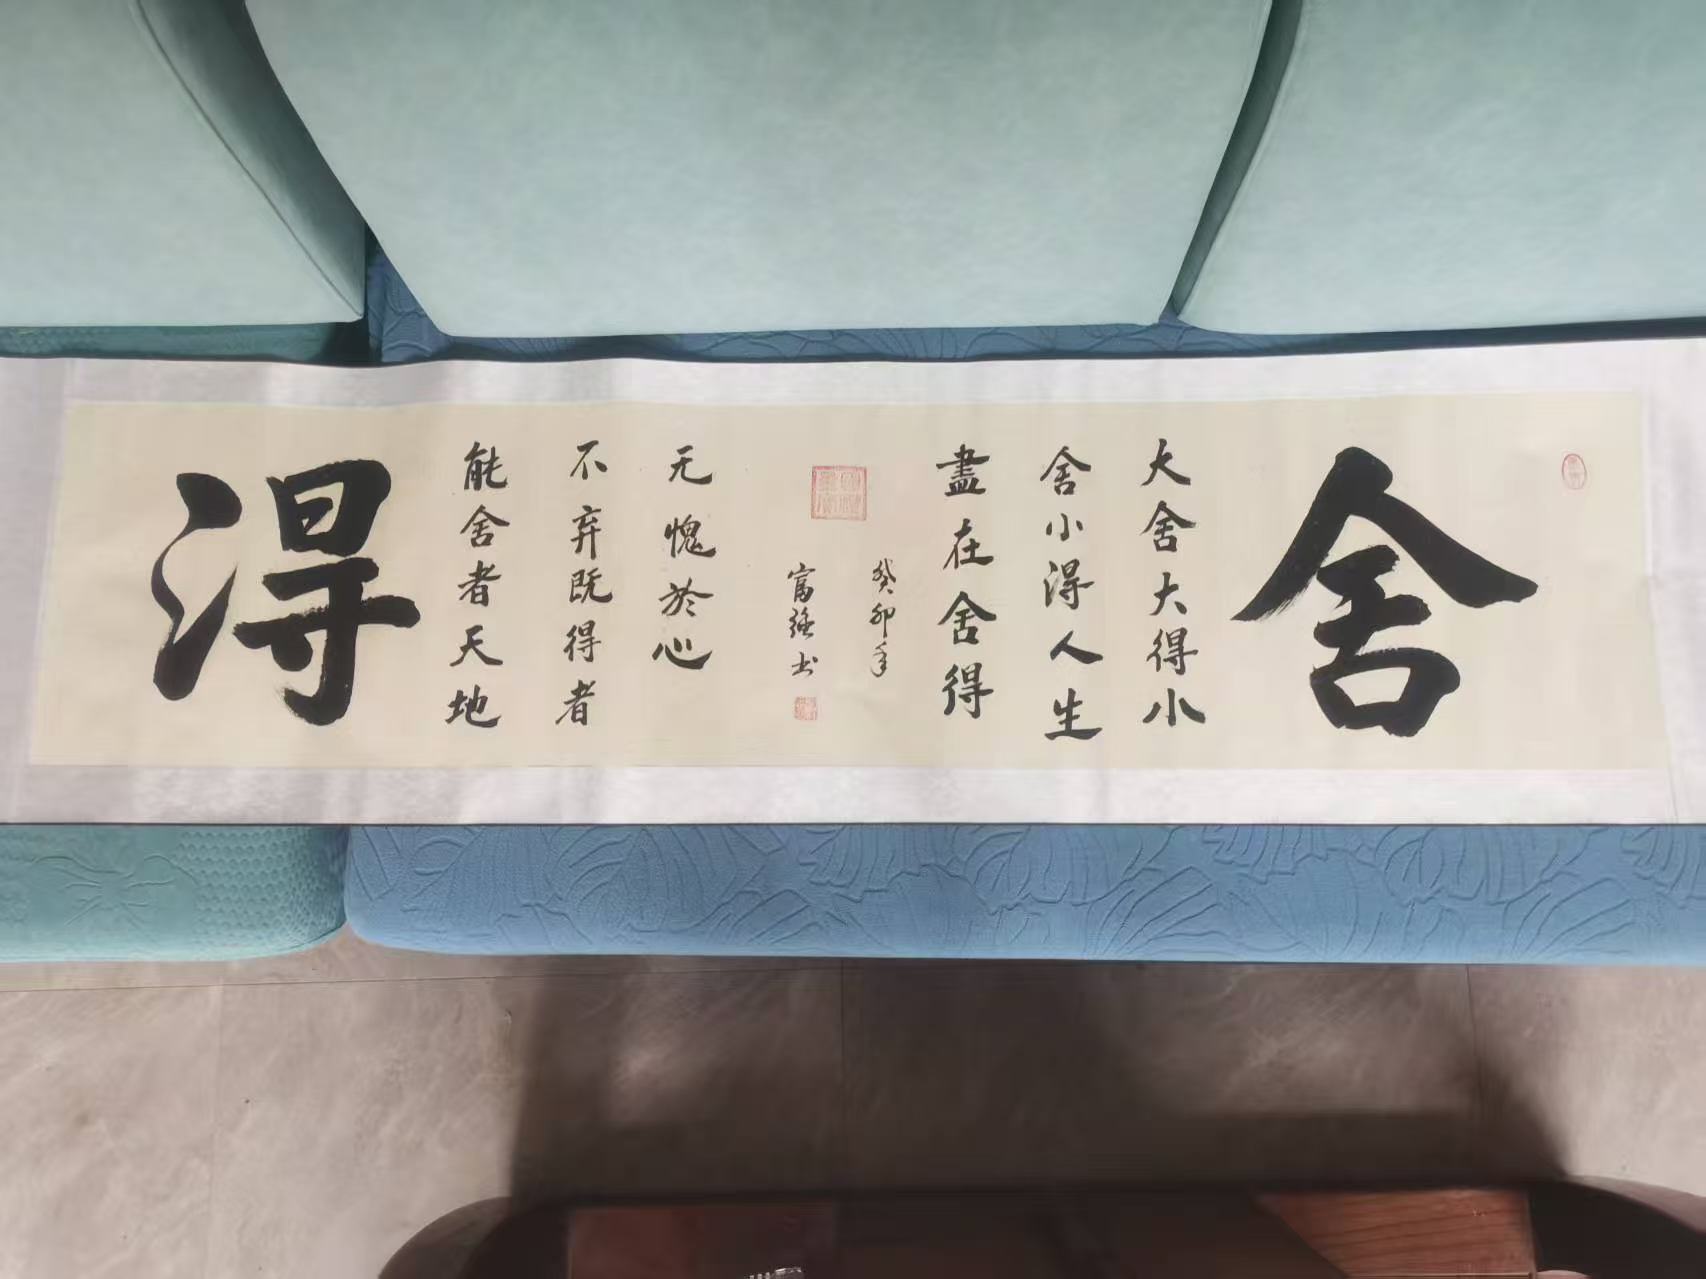 舍
大舍大得小
舍小淂人生
盡在舍得
淂
能舍者天地
不弃既得者
无愧於心
癸卯年
富強书